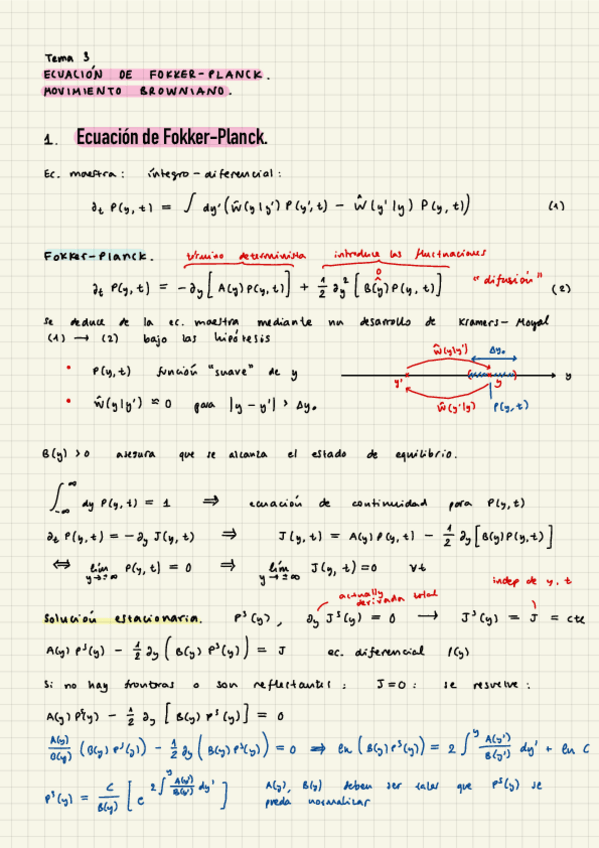 Tema 3
ECUACIÓN DE FOKKER-PLANCK.
MOVIMIENTO BROWNIANO.
1. Ecuación de Fokker-Planck.
Ec. maestra: íntegro-diferencial:
∂t P(y,t) = ∫ dy' (Ŵ(y|y') P(y',t) − Ŵ(y'|y) P(y,t)) (1)
Fokker-Planck. término determinista introduce las fluctuaciones
∂t P(y,t) = −∂y [A(y)P(y,t)] + 1/2 ∂y² [B(y)P(y,t)] "difusión" (2)
0
^
Se deduce de la ec. maestra mediante un desarrollo de Kramers-Moyal
(1) → (2) bajo las hipótesis
• P(y,t) función "suave" de y
• Ŵ(y|y') ≈ 0 para |y − y'| > Δy₀
Ŵ(y|y') Δy₀
y' y y
Ŵ(y'|y) P(y,t)
B(y) > 0 asegura que se alcanza el estado de equilibrio.
∫_{-∞}^{∞} dy P(y,t) = 1 ⇒ ecuación de continuidad para P(y,t)
∂t P(y,t) = −∂y J(y,t) ⇒ J(y,t) = A(y)P(y,t) − 1/2 ∂y [B(y)P(y,t)]
⇔ lím_{y→±∞} P(y,t) = 0 ⇒ lím_{y→±∞} J(y,t) = 0 ∀t
actually derivada total indep de y, t
Solución estacionaria. Pˢ(y), ∂y Jˢ(y) = 0 → Jˢ(y) = J = cte
A(y) Pˢ(y) − 1/2 ∂y (B(y) Pˢ(y)) = J ec. diferencial P(y)
Si no hay fronteras o son reflectantes: J=0: se resuelve:
A(y) Pˢ(y) − 1/2 ∂y [B(y) Pˢ(y)] = 0
A(y)/B(y) (B(y) Pˢ(y)) − 1/2 ∂y (B(y) Pˢ(y)) = 0 ⇒ ln (B(y) Pˢ(y)) = 2 ∫^y A(y')/B(y') dy' + ln C
Pˢ(y) = C/B(y) [e^{2∫^y A(y')/B(y') dy'}] A(y), B(y) deben ser tales que Pˢ(y) se
pueda normalizar